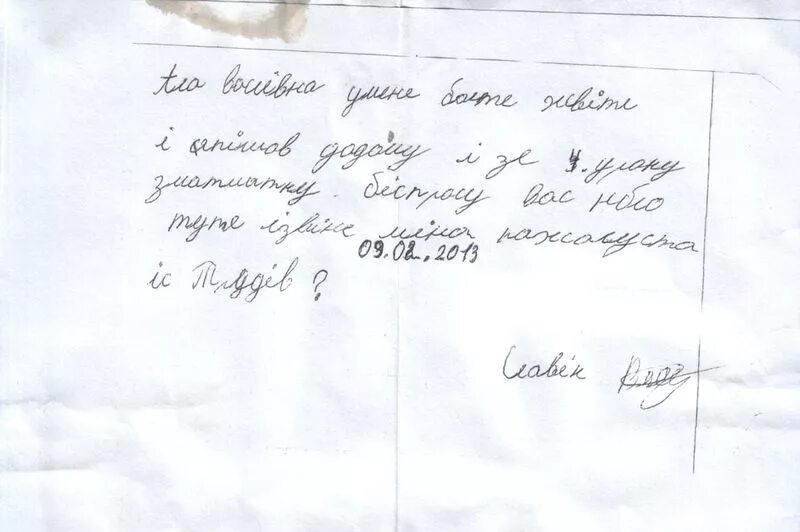 Ала восіівна умене боите жвіте
і япішов додому і зе 4. уроку
зматматку. біспросу вас нбло
туте ізвіне міна пажалуста
09.02.2013
іс Трудів?
Славік